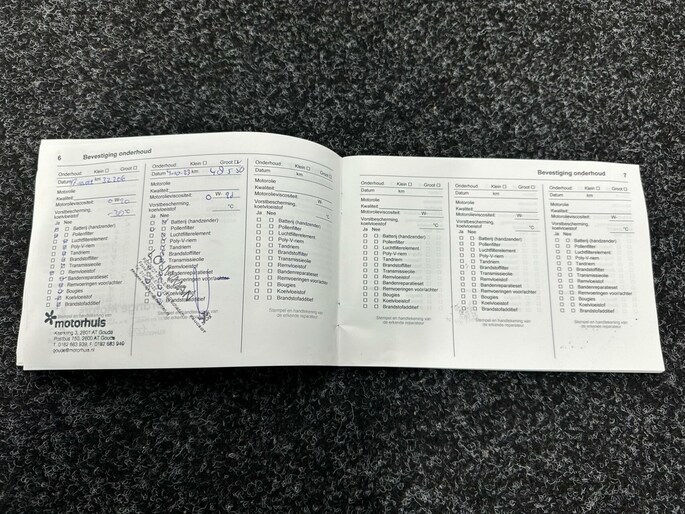 6 Bevestiging onderhoud
Onderhoud: Klein Groot
Datum km
Motorolie
Kwaliteit
Motorolieviscositeit W-
Vorstbescherming,
koelvloeistof °C
Ja Nee
Batterij (handzender)
Pollenfilter
Luchtfilterelement
Poly-V-riem
Tandriem
Brandstoffilter
Transmissieolie
Remvloeistof
Bandenreparatieset
Remvoeringen voor/achter
Bougies
Koelvloeistof
Brandstofadditief
motorhuis
2801 AT Gouda
Postbus 150, 2800 AT Gouda
gouda@motorhuis.nl
Onderhoud: Klein Groot
Datum km
Motorolie
Kwaliteit
Motorolieviscositeit W-
Vorstbescherming,
koelvloeistof °C
Ja Nee
Batterij (handzender)
Pollenfilter
Luchtfilterelement
Poly-V-riem
Tandriem
Brandstoffilter
Transmissieolie
Remvloeistof
Bandenreparatieset
Remvoeringen voor/achter
Bougies
Koelvloeistof
Brandstofadditief
Onderhoud: Klein Groot
Datum km
Motorolie
Kwaliteit
Motorolieviscositeit W-
Vorstbescherming,
koelvloeistof °C
Ja Nee
Batterij (handzender)
Pollenfilter
Luchtfilterelement
Poly-V-riem
Tandriem
Brandstoffilter
Transmissieolie
Remvloeistof
Bandenreparatieset
Remvoeringen voor/achter
Bougies
Koelvloeistof
Brandstofadditief
Stempel en handtekening van
de erkende reparateur
Bevestiging onderhoud 7
Onderhoud: Klein Groot
Datum km
Motorolie
Kwaliteit
Motorolieviscositeit W-
Vorstbescherming,
koelvloeistof °C
Ja Nee
Batterij (handzender)
Pollenfilter
Luchtfilterelement
Poly-V-riem
Tandriem
Brandstoffilter
Transmissieolie
Remvloeistof
Bandenreparatieset
Remvoeringen voor/achter
Bougies
Koelvloeistof
Brandstofadditief
Stempel en handtekening van
de erkende reparateur
Onderhoud: Klein Groot
Datum km
Motorolie
Kwaliteit
Motorolieviscositeit W-
Vorstbescherming,
koelvloeistof °C
Ja Nee
Batterij (handzender)
Pollenfilter
Luchtfilterelement
Poly-V-riem
Tandriem
Brandstoffilter
Transmissieolie
Remvloeistof
Bandenreparatieset
Remvoeringen voor/achter
Bougies
Koelvloeistof
Brandstofadditief
Stempel en handtekening van
de erkende reparateur
Onderhoud: Klein Groot
Datum km
Motorolie
Kwaliteit
Motorolieviscositeit W-
Vorstbescherming,
koelvloeistof °C
Ja Nee
Batterij (handzender)
Pollenfilter
Luchtfilterelement
Poly-V-riem
Tandriem
Brandstoffilter
Transmissieolie
Remvloeistof
Bandenreparatieset
Remvoeringen voor/achter
Bougies
Koelvloeistof
Brandstofadditief
Stempel en handtekening van
de erkende reparateur